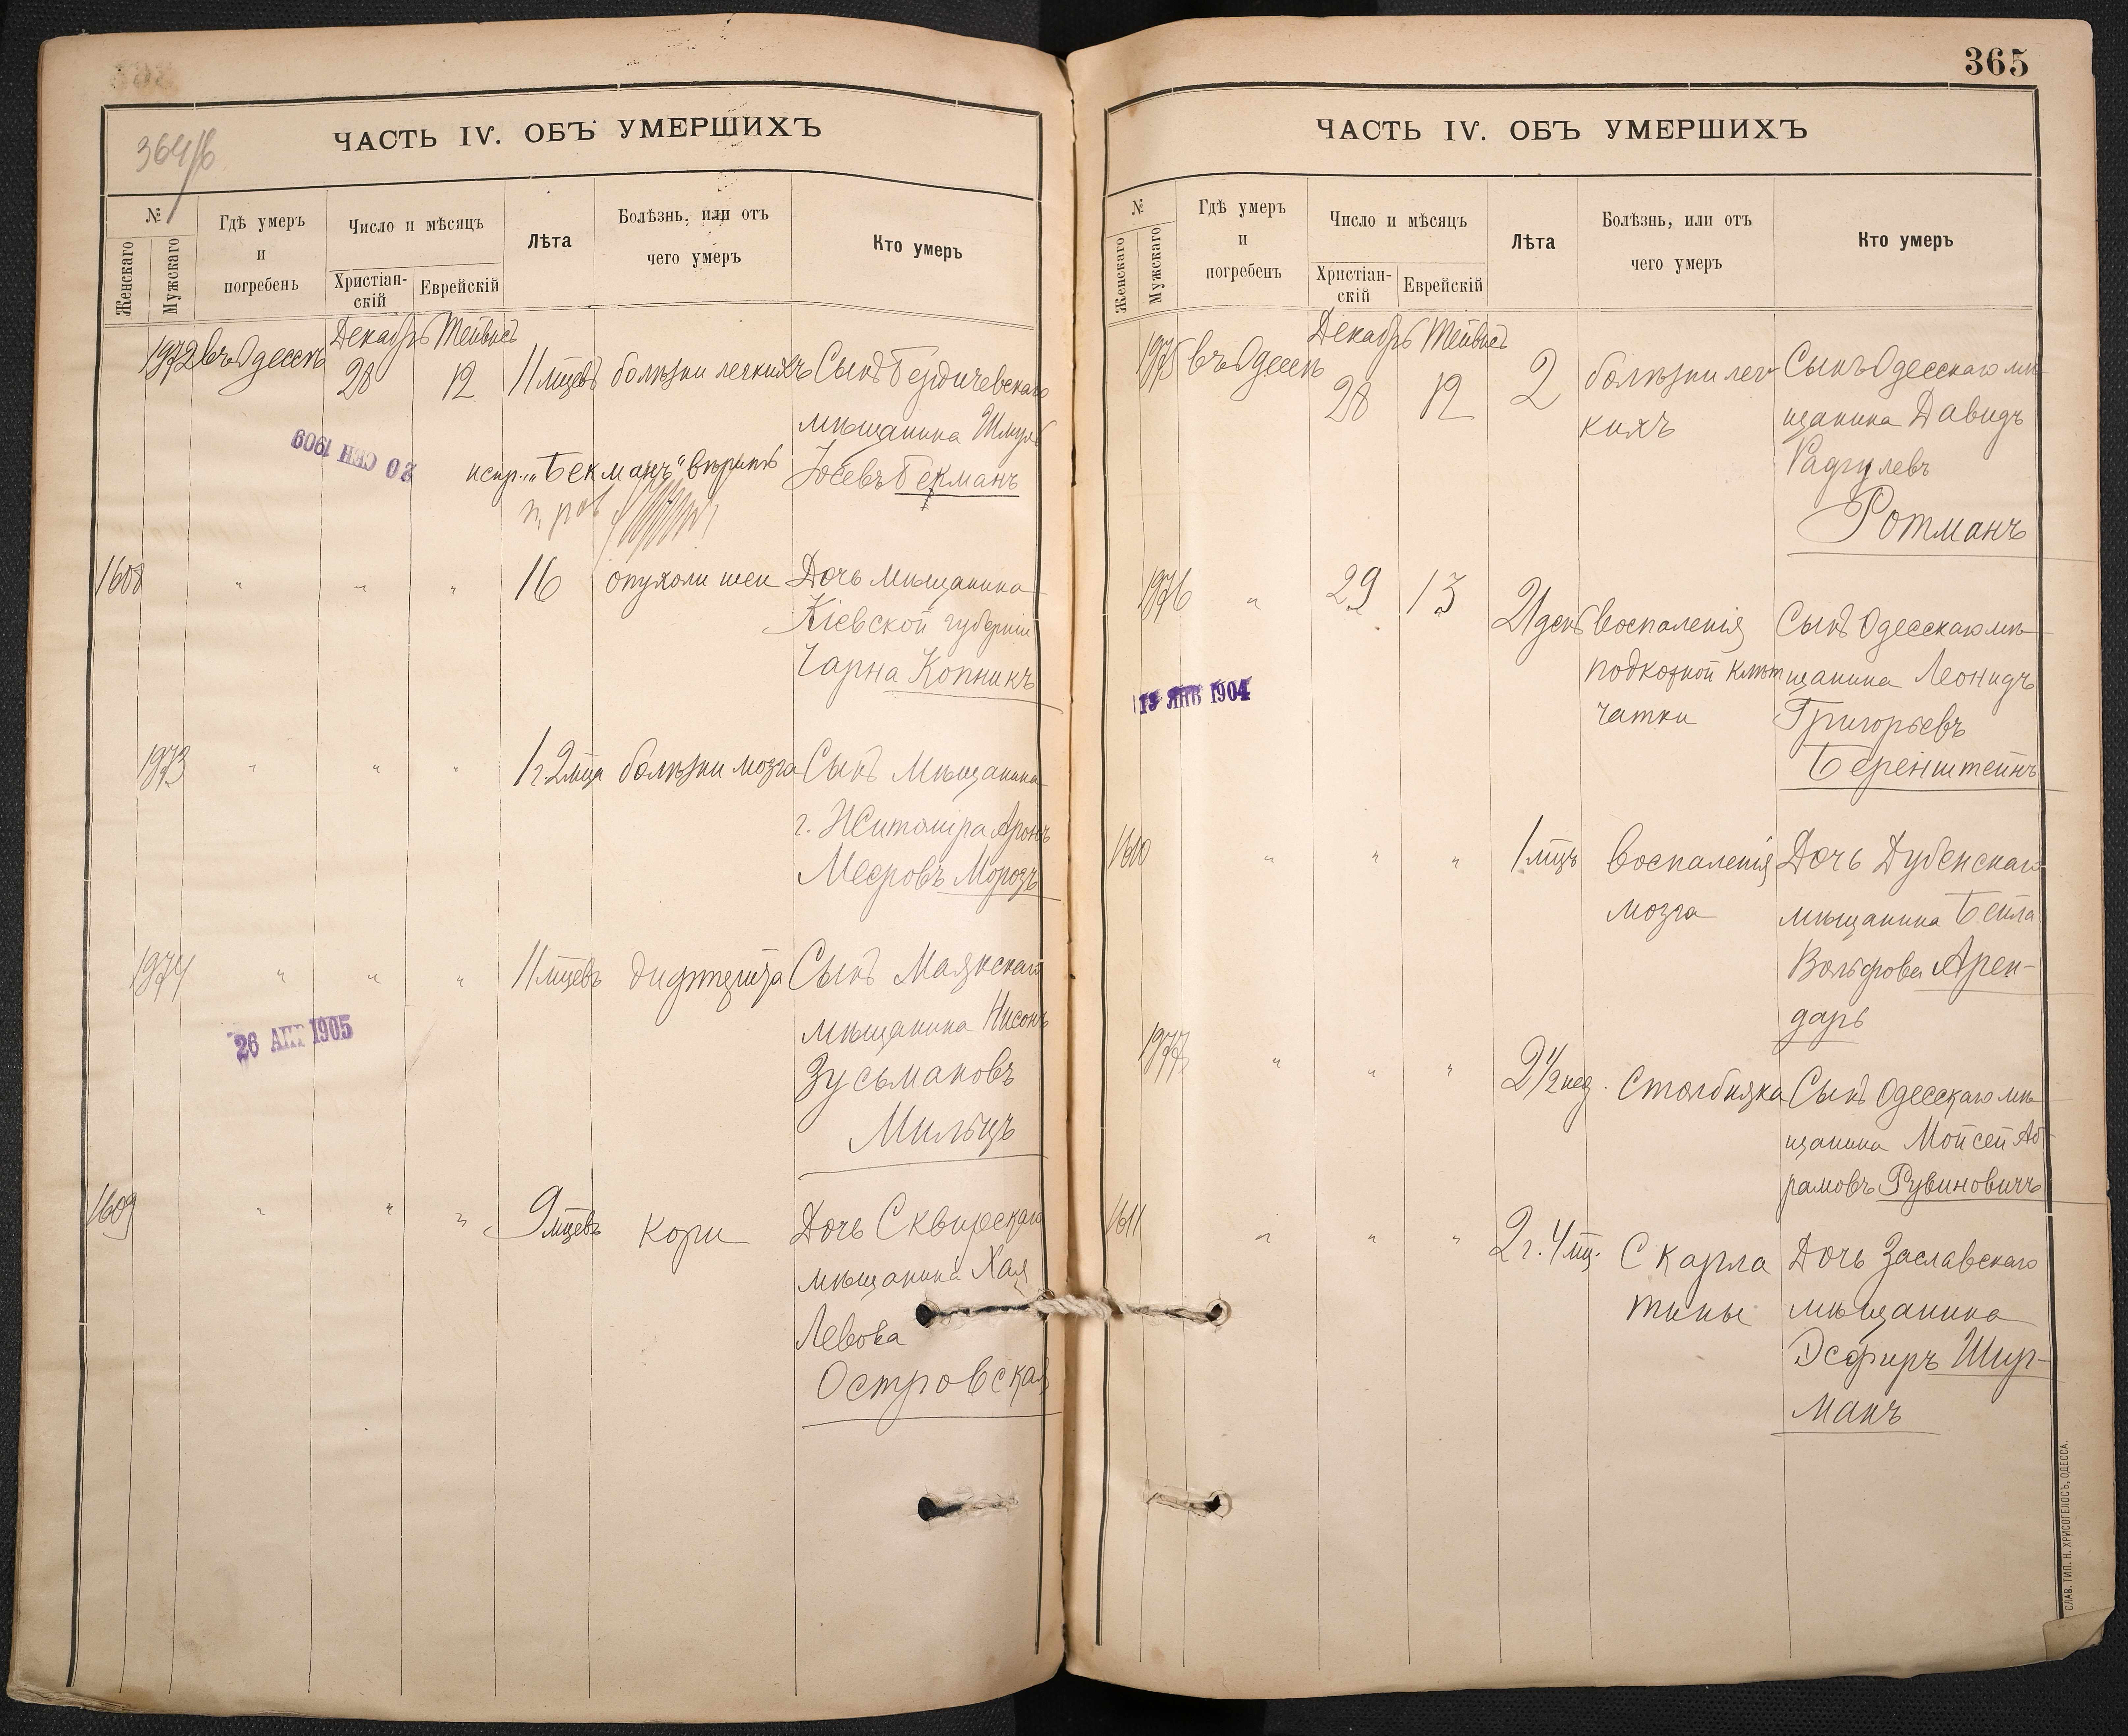 364/б
ЧАСТЬ IV. ОБЪ УМЕРШИХЪ
№
Женскаго
Мужскаго
Гдѣ умеръ
и
погребенъ
Число и мѣсяцъ
Христіан-
скій
Еврейскій
Лѣта
Болѣзнь, или отъ
чего умеръ
Кто умеръ
Декабрь Тейвисъ
1972 въ Одессѣ 28 12 11 мцевъ болѣзни легкихъ Сынъ Бердичевскаго
мѣщанина Шмуль
20 СЕН 1909
испр. „Бекманъ“ вѣрить
Іосевъ Бекманъ
1608 " " " 16 опухоли шеи Дочь мѣщанина
Кіевской губерніи
Чарна Копникъ
1973 " " " 1 г. 2 мца болѣзни мозга Сынъ Мѣщанина
г. Житоміра Аронъ
Мееровъ Морозъ
1974 " " " 11 мцевъ дифтерита Сынъ Маякскаго
мѣщанина Нисонъ
26 АПР 1905
Зусьмановъ
Мильцъ
1609 " " " 9 мцевъ Кори Дочь Сквирскаго
мѣщанина Хая
Левова
Островская
365
ЧАСТЬ IV. ОБЪ УМЕРШИХЪ
№
Женскаго
Мужскаго
Гдѣ умеръ
и
погребенъ
Число и мѣсяцъ
Христіан-
скій
Еврейскій
Лѣта
Болѣзнь, или отъ
чего умеръ
Кто умеръ
Декабрь Тейвисъ
1975 въ Одессѣ 28 12 2 болѣзни лег- Сынъ Одесскаго мѣ-
кихъ щанина Давидъ
Ротманъ
1976 " 29 13 21 день воспаленія Сынъ Одесскаго мѣ-
подкожной клѣт щанина Леонидъ
13 ЯНВ 1904
чатки Григорьевъ
Беренштейнъ
1610 " " " 1 мцъ воспаленія Дочь Дубенскаго
мозга мѣщанина Бейла
Вольфова Арен-
дарь
1977 " " " 2 1/2 нед. Столбняка Сынъ Одесскаго мѣ-
щанина Мойсей Аб-
рамовъ Рувиновичъ
1611 " " " 2 г. 4 мц. Скарла Дочь Заславскаго
тины мѣщанина
Эсфиръ Шур-
манъ
СЛАВ. ТИП. Н. ХРИСОГЕЛОСЪ, ОДЕССА.